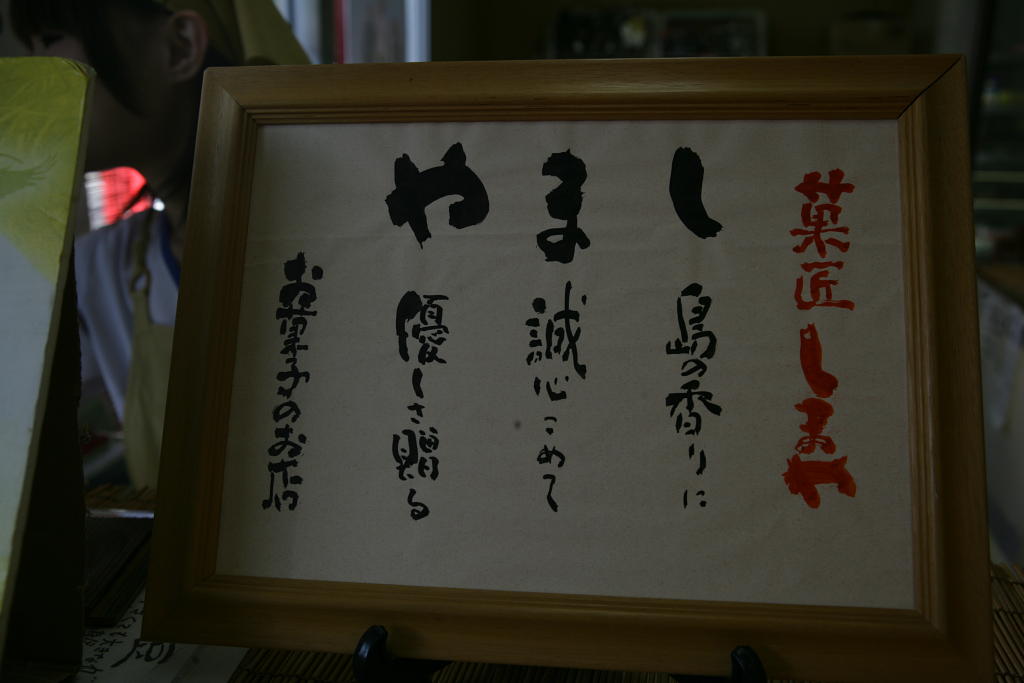 菓匠しまや
し 島の香りに
ま 誠心こめて
や 優しさ贈る
お菓子のお店